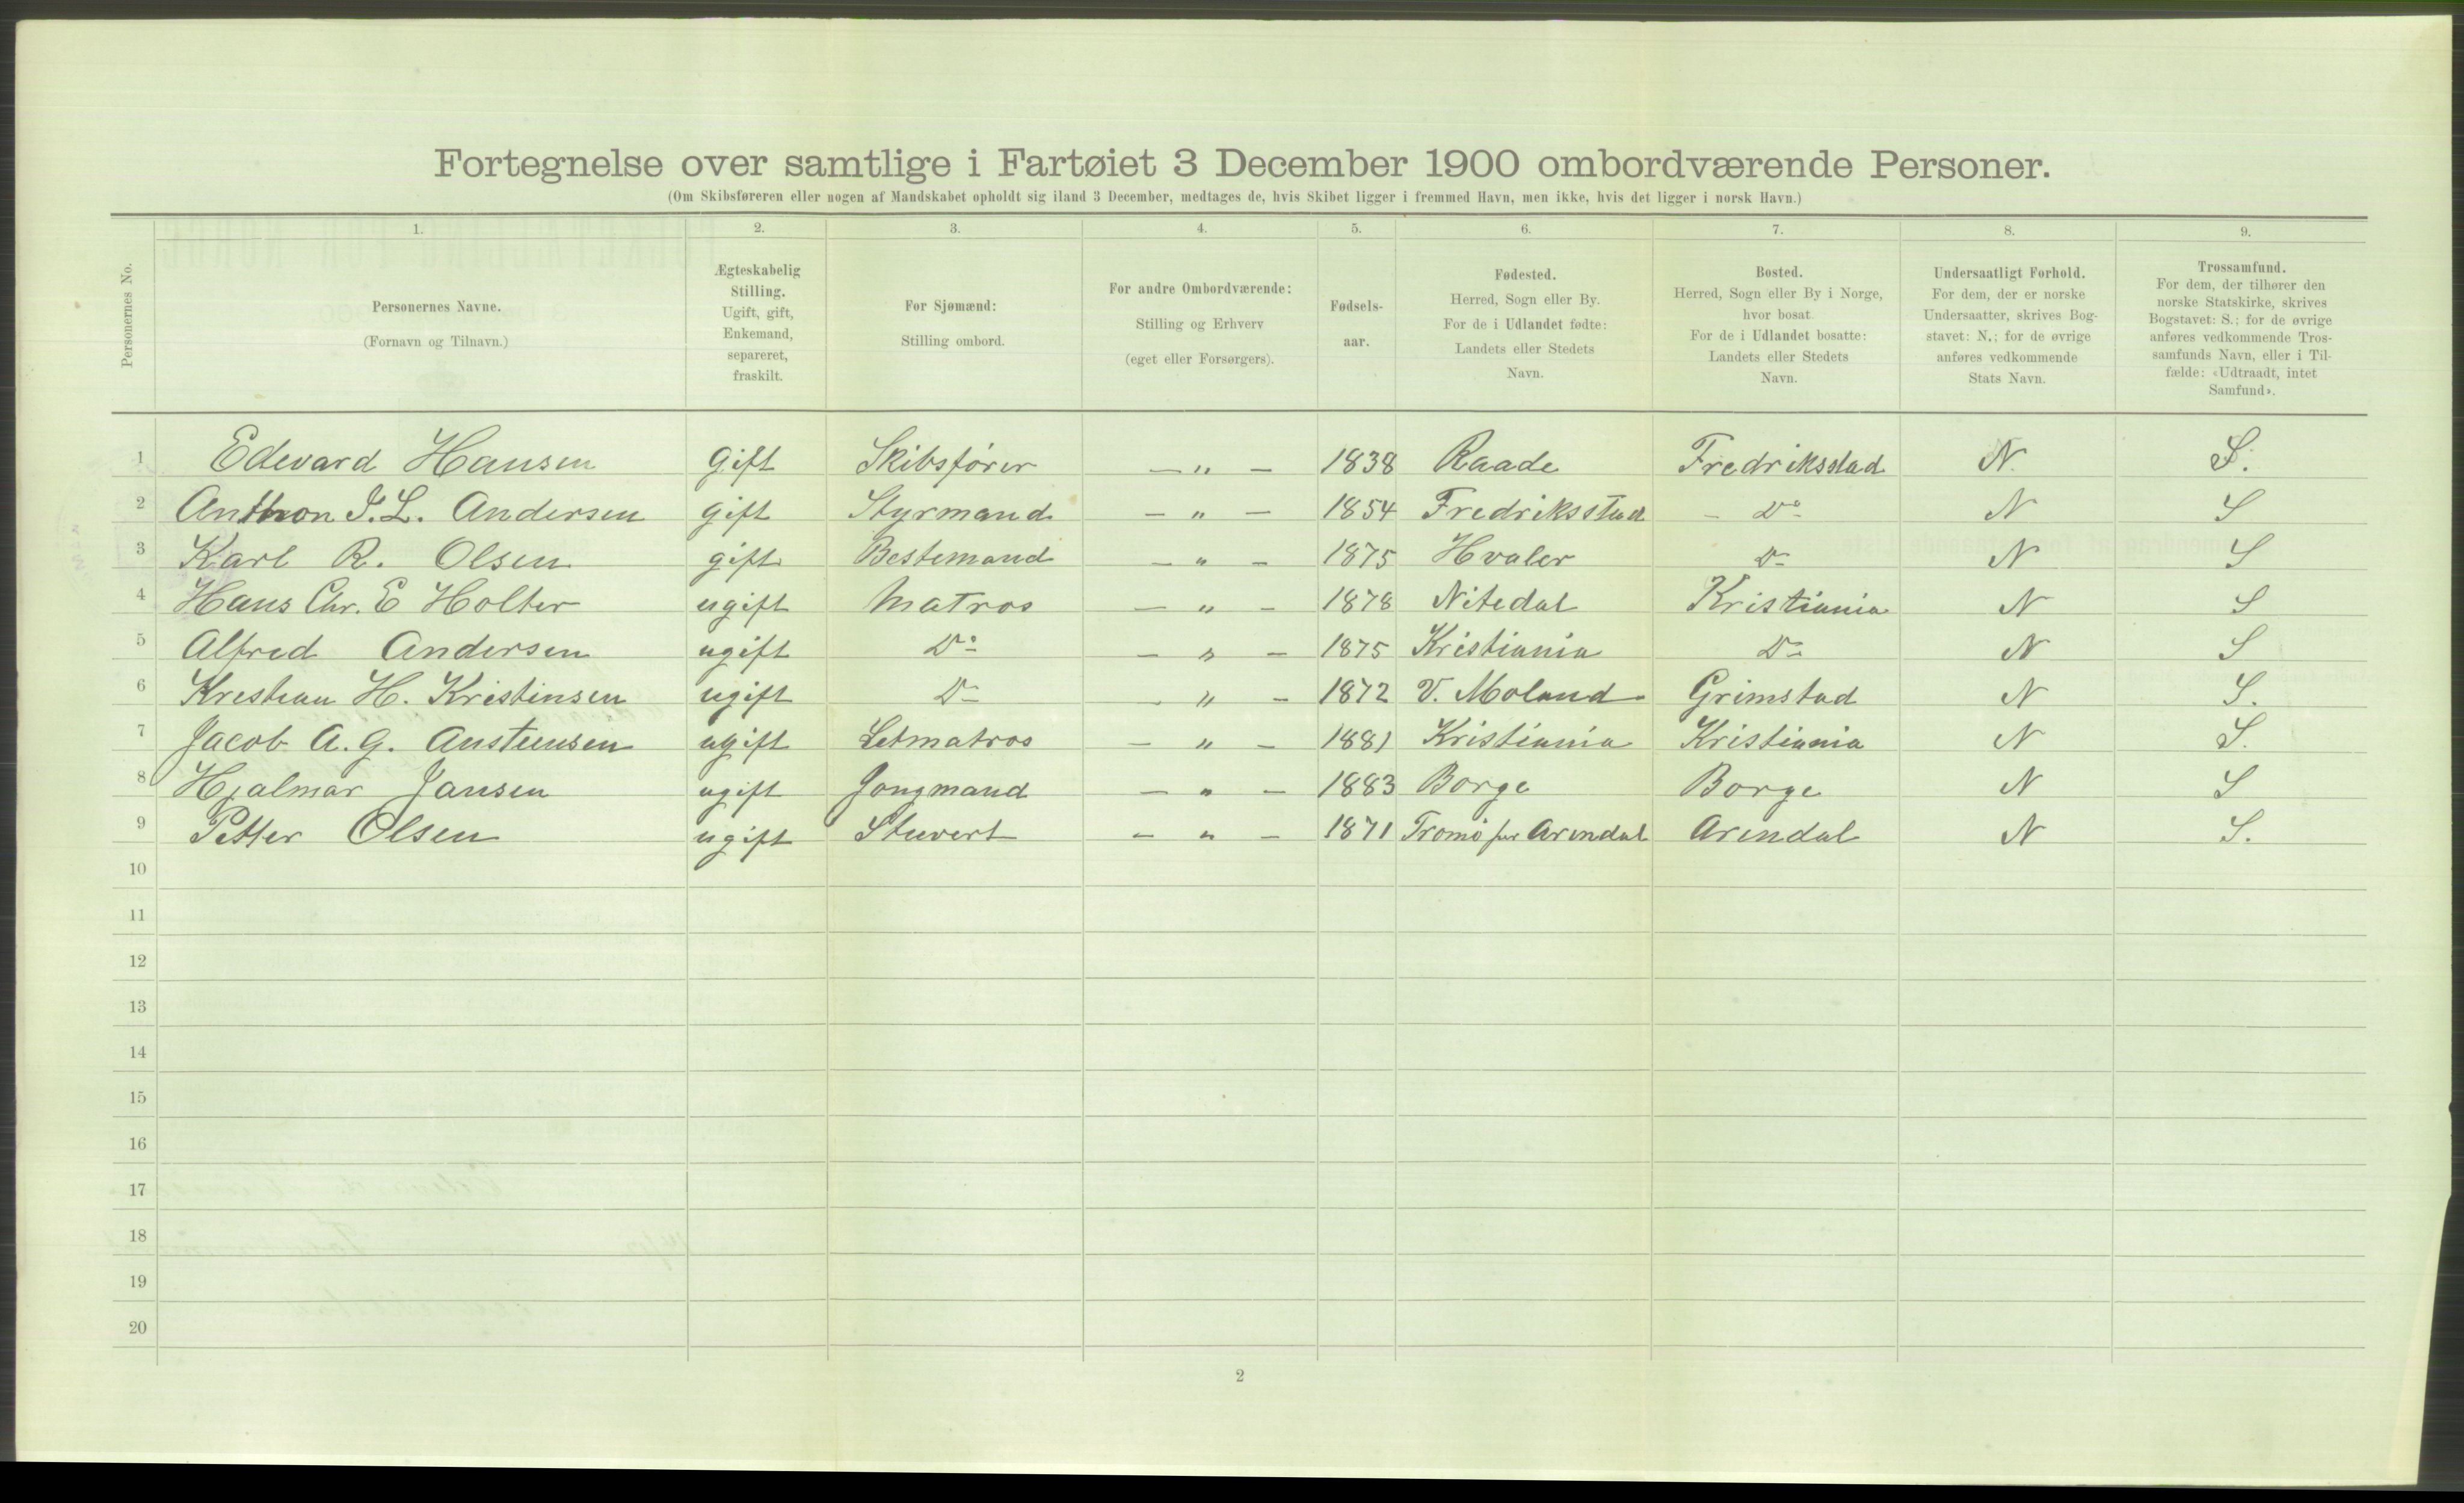 Fortegnelse over samtlige i Fartøiet 3 December 1900 ombordværende Personer.
(Om Skibsføreren eller nogen af Mandskabet opholdt sig iland 3 December, medtages de, hvis Skibet ligger i fremmed Havn, men ikke, hvis det ligger i norsk Havn.)
Personernes No.
1. 2. 3. 4. 5. 6. 7. 8. 9.
Personernes Navne.
(Fornavn og Tilnavn.)
Ægteskabelig
Stilling.
Ugift, gift,
Enkemand,
separeret,
fraskilt.
For Sjømænd:
Stilling ombord.
For andre Ombordværende:
Stilling og Erhverv
(eget eller Forsørgers).
Fødsels-
aar.
Fødested.
Herred, Sogn eller By.
For de i Udlandet fødte:
Landets eller Stedets
Navn.
Bosted.
Herred, Sogn eller By i Norge,
hvor bosat
For de i Udlandet bosatte:
Landets eller Stedets
Navn.
Undersaatligt Forhold.
For dem, der er norske
Undersaatter, skrives Bog-
stavet: N.; for de øvrige
anføres vedkommende
Stats Navn.
Trossamfund.
For dem, der tilhører den
norske Statskirke, skrives
Bogstavet: S.; for de øvrige
anføres vedkommende Tros-
samfunds Navn, eller i Til-
fælde: «Udtraadt, intet
Samfund».
1 Edevard Hansen gift Skibsfører — " — 1838 Raade Fredriksstad N. S.
2 Anthon J. L. Andersen gift Styrmand — " — 1854 Fredriksstad — Do N S
3 Karl R. Olsen gift Bestemand — " — 1875 Hvaler Do N S
4 Hans Chr. E Holter ugift Matros — " — 1878 Nitedal Kristiania N S
5 Alfred Andersen ugift Do — " — 1875 Kristiania Do N S
6 Krestian H. Kristinsen ugift Do — " — 1872 V. Moland Grimstad N S.
7 Jacob A. G. Austeensen ugift Letmatros — " — 1881 Kristiania Kristiania N S.
8 Hjalmar Jansen ugift Jongmand — " — 1883 Borge Borge N S
9 Petter Olsen ugift Stuvert — " — 1871 Tromö per Arendal Arendal N S.
10
11
12
13
14
15
16
17
18
19
20
2